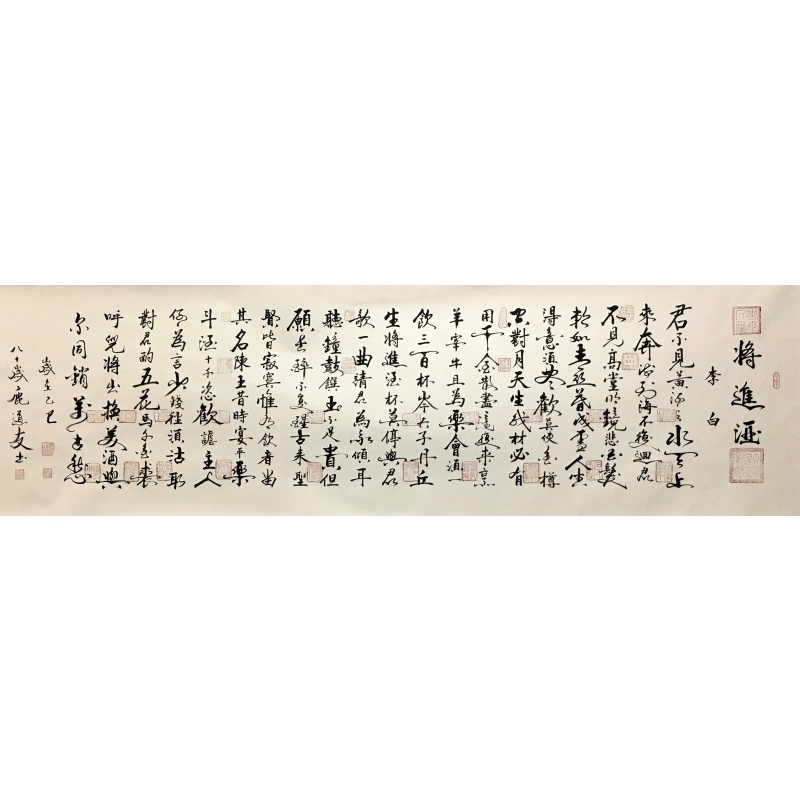 將進酒
李白
君不見黃河之水天上
來奔流到海不復迴君
不見高堂明鏡悲白髮
朝如青絲暮成雪人生
得意須盡歡莫使金樽
空對月天生我材必有
用千金散盡還復來烹
羊宰牛且為樂會須一
飲三百杯岑夫子丹丘
生將進酒杯莫停與君
歌一曲請君為我傾耳
聽鐘鼓饌玉不足貴但
願長醉不復醒古來聖
賢皆寂寞惟有飲者留
其名陳王昔時宴平樂
斗酒十千恣歡謔主人
何為言少錢徑須沽取
對君酌五花馬千金裘
呼兒將出換美酒與
爾同銷萬古愁
歲在乙巳
八十歲鹿道友書